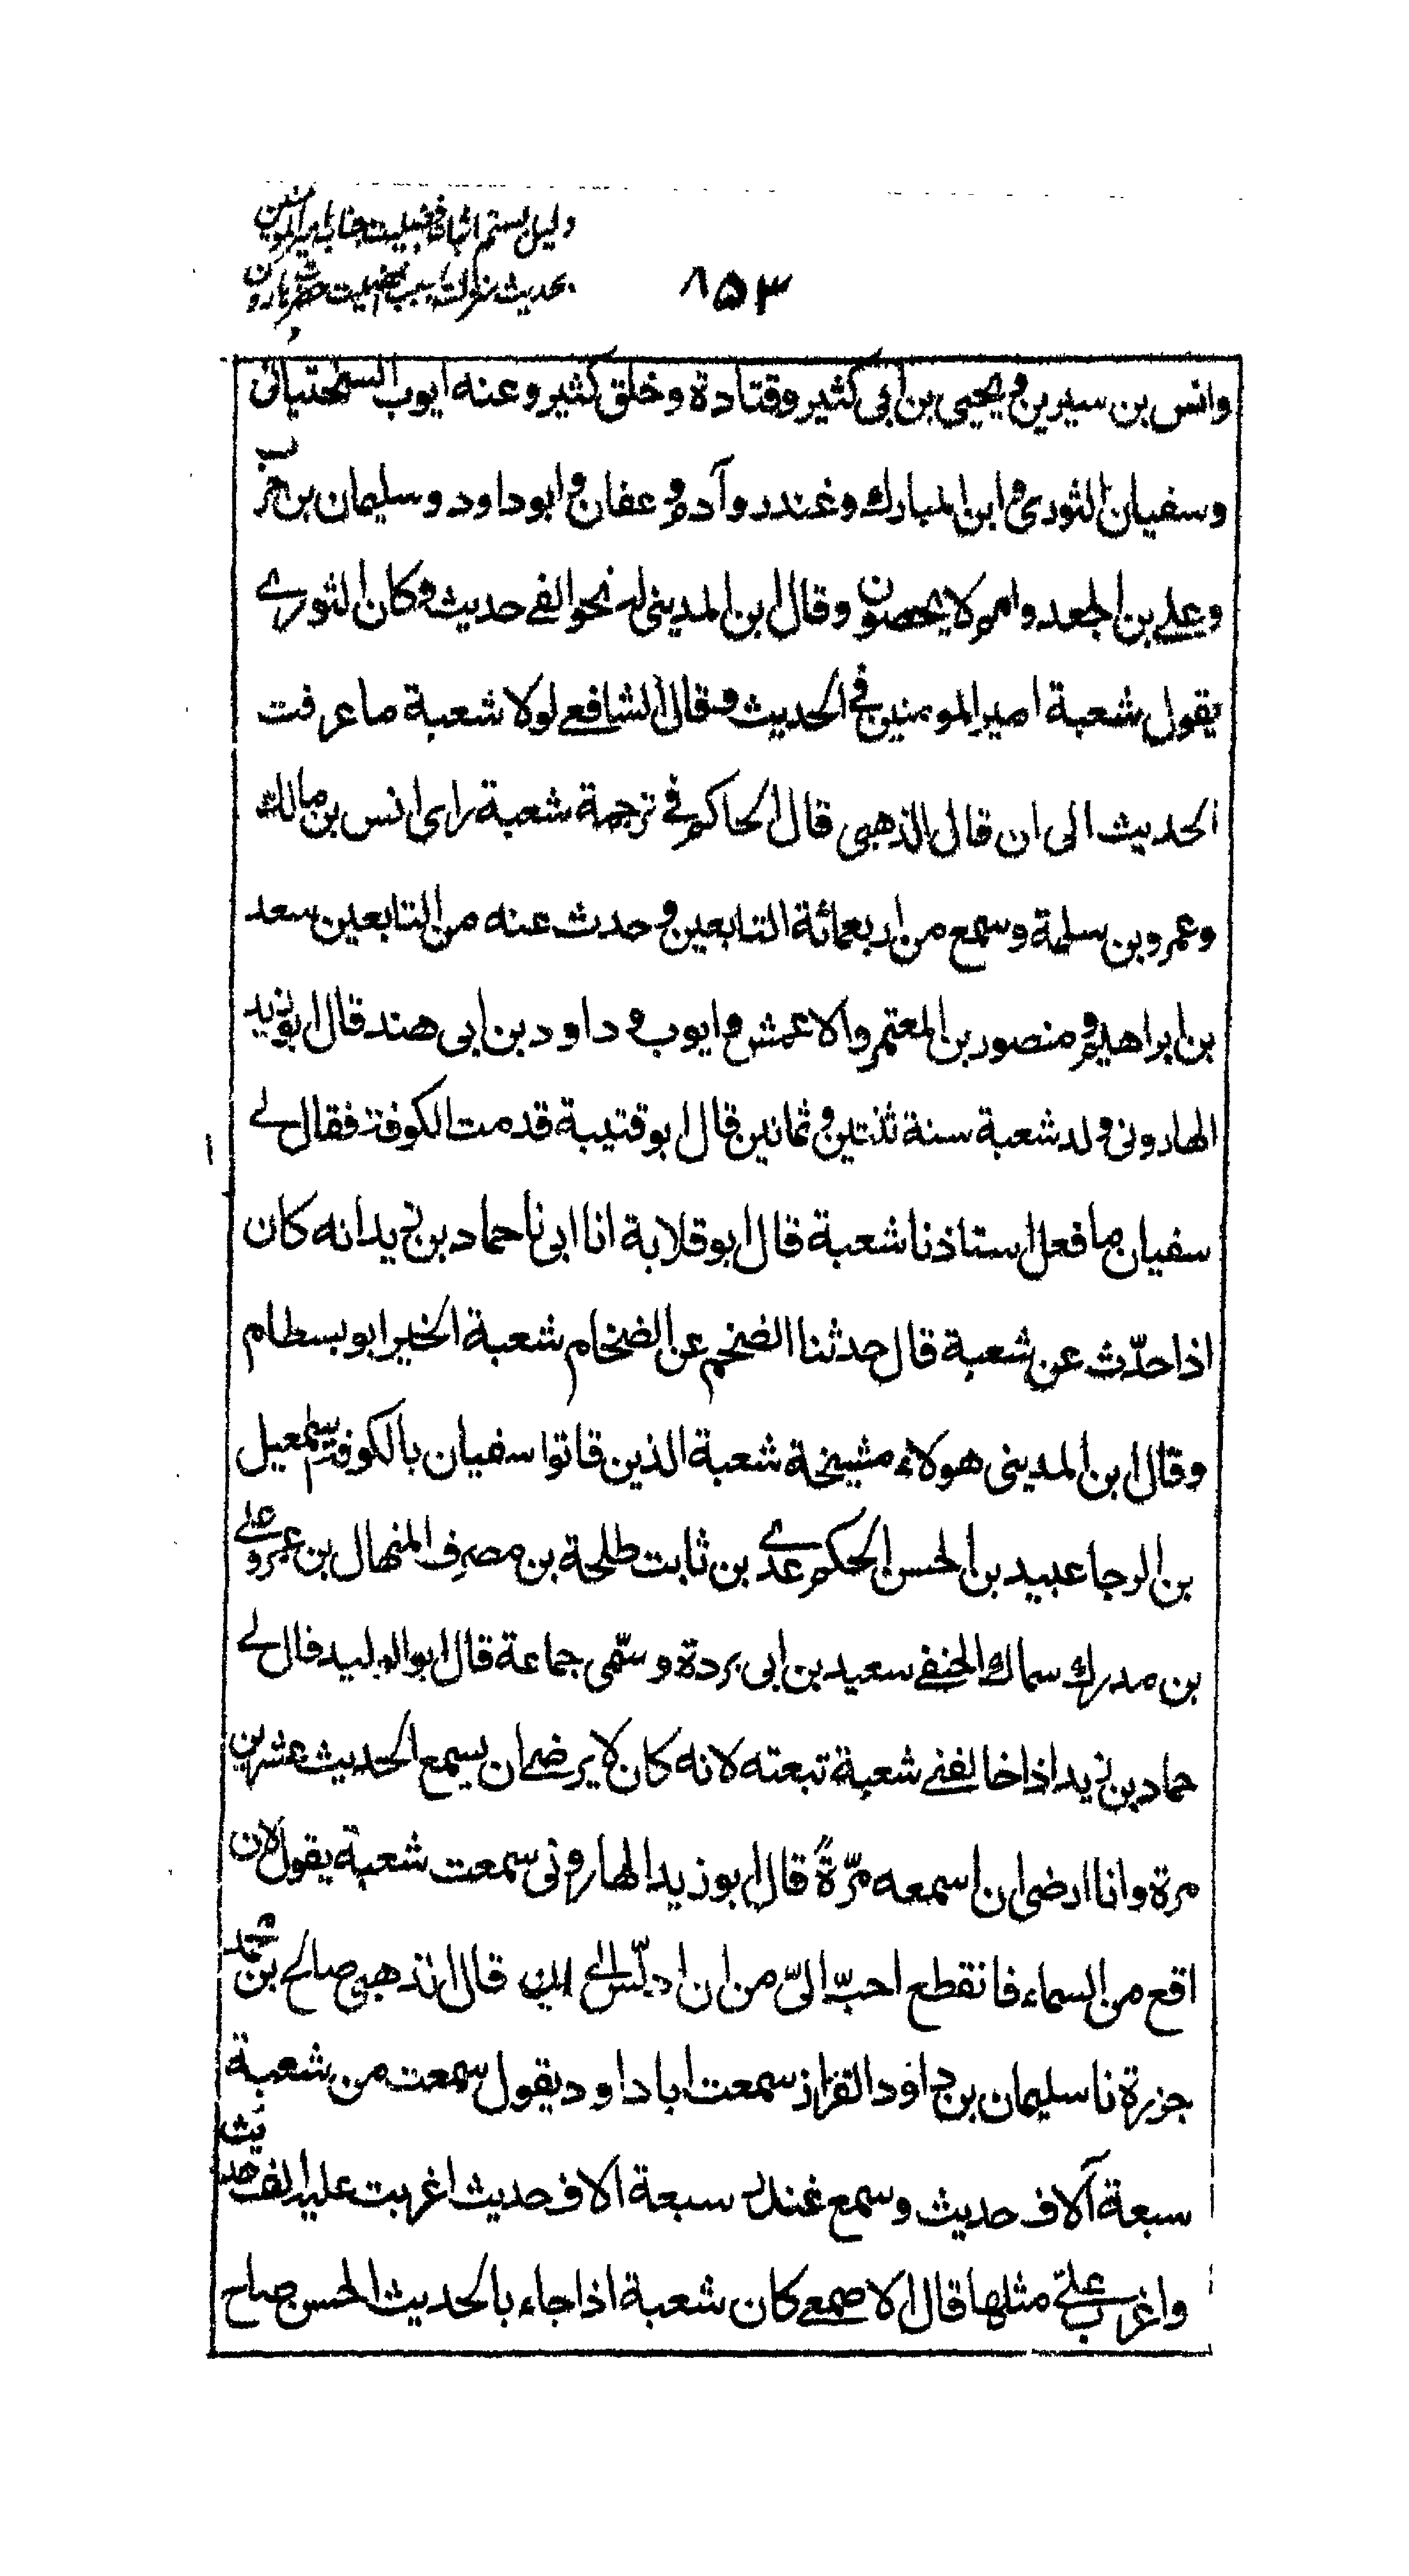 دليل بستم اثبات افضليت جناب امير المومنين
بحديث منزلت بسبب افضليت حضرت هارون
۸۵۳
وانس بن سيرين ويحيى بن ابى كثير وقتادة وخلق كثير وعنه ايوب السختيانى
وسفيان الثورى وابن المبارك وغندر وآدم وعفان وابو داود وسليمان بن حرب
وعلى بن الجعد وامم لا يحصون وقال ابن المدينى له نحو الفى حديث وكان الثورى
يقول شعبة امير المومنين فى الحديث وقال الشافعى لولا شعبة ما عرفت
الحديث الى ان قال الذهبى قال الحاكم فى ترجمة شعبة راى انس بن مالك
وعمرو بن سلمة وسمع من اربعمائة التابعين وحدث عنه من التابعين سعد
بن ابراهيم ومنصور بن المعتمر والاعمش وايوب وداود بن ابى هند قال ابو زيد
الهارونى ولد شعبة سنة ثنتين وثمانين قال ابو قتيبة قدمت الكوفة فقال لى
سفيان ما فعل استاذنا شعبة قال ابو قلابة انا ابى نا حماد بن زيد انه كان
اذا حدّث عن شعبة قال حدثنا الضخم عن الضخام شعبة الخير ابو بسطام
وقال ابن المدينى هولاء مشيخة شعبة الذين فاتوا سفيان بالكوفة اسمعيل
بن الرجا عبيد بن الحسن الحكم عدى بن ثابت طلحة بن مصرف المنهال بن عمرو على
بن مدرك سماك الحنفى سعيد بن ابى بردة وسمّى جماعة قال ابو الوليد قال لى
حماد بن زيد اذا خالفنى شعبة تبعته لانه كان لا يرضى ان يسمع الحديث عشرين
مرة وانا ارضى ان اسمعه مرّةً قال ابو زيد الهارونى سمعت شعبة يقول لان
اقع من السماء فانقطع احبّ الىّ من ان ادلّس الى ان قال الذهبى صالح بن محمد
جزرة نا سليمان بن داود القزاز سمعت ابا داود يقول سمعت من شعبة
سبعة آلاف حديث وسمع غندر سبعة آلاف حديث اغربت عليه الف حديث
واغرب علىّ مثلها قال الاصمعى كان شعبة اذا جاء بالحديث الحسن صاح